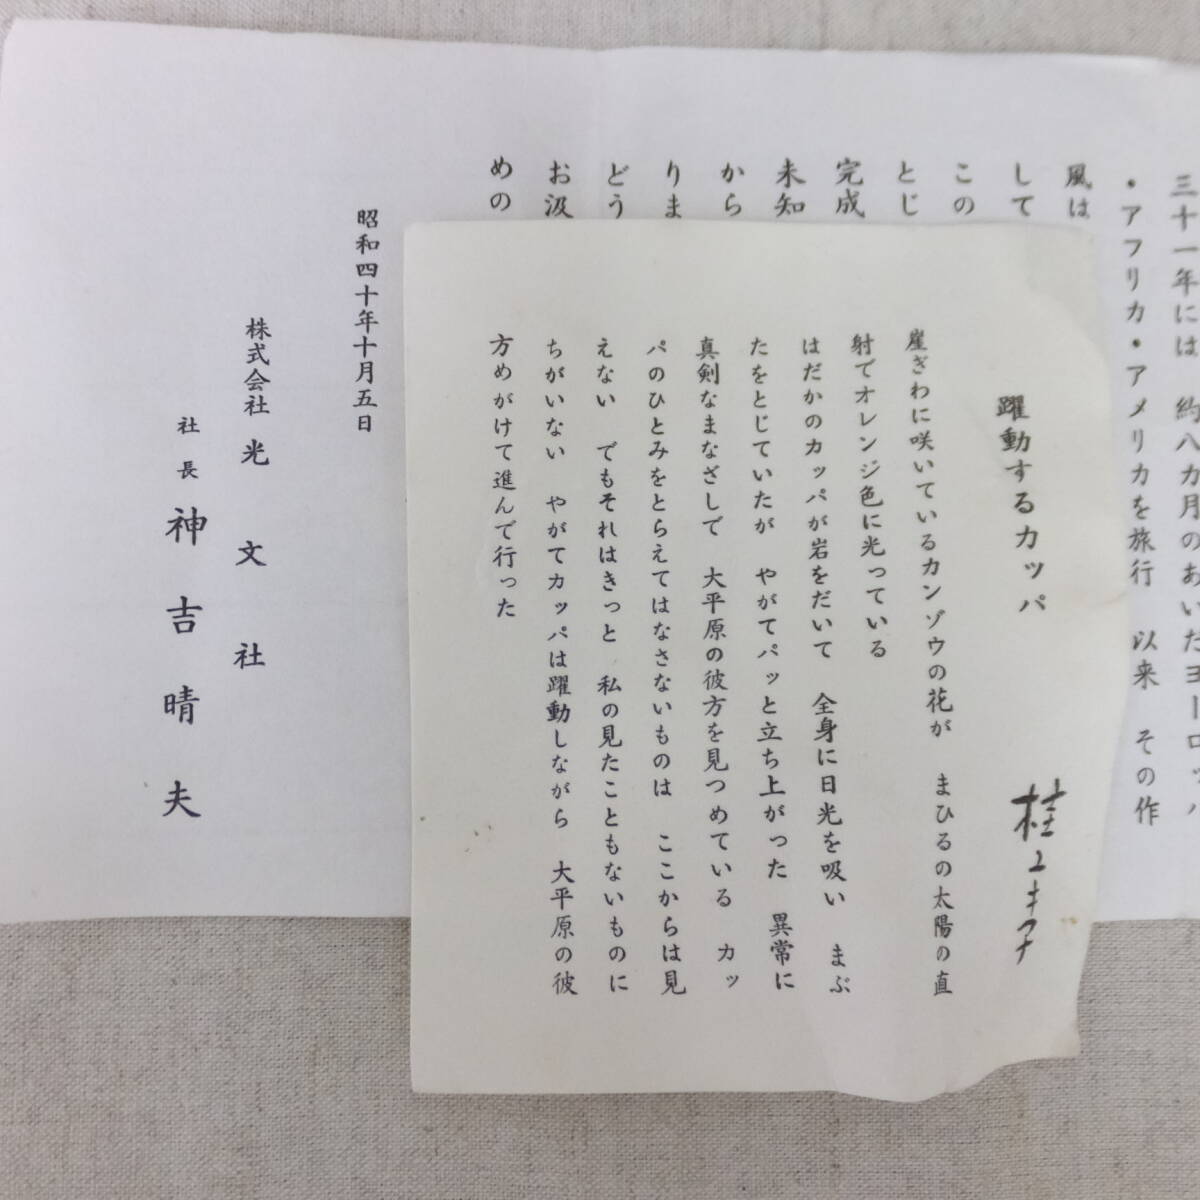 三十一年には　約八カ月のあいだヨーロッパ
・アフリカ・アメリカを旅行　以来　その作
風は
して
この
とじ
完成
未知
から
りま
どう
お汲
めの
昭和四十年十月五日
株式会社　光文社
社長　神吉晴夫
躍動するカッパ
桂ユキ子
崖ぎわに咲いているカンゾウの花が　まひるの太陽の直
射でオレンジ色に光っている
はだかのカッパが岩をだいて　全身に日光を吸い　まぶ
たをとじていたが　やがてパッと立ち上がった　異常に
真剣なまなざしで　大平原の彼方を見つめている　カッ
パのひとみをとらえてはなさないものは　ここからは見
えない　でもそれはきっと　私の見たこともないものに
ちがいない　やがてカッパは躍動しながら　大平原の彼
方めがけて進んで行った